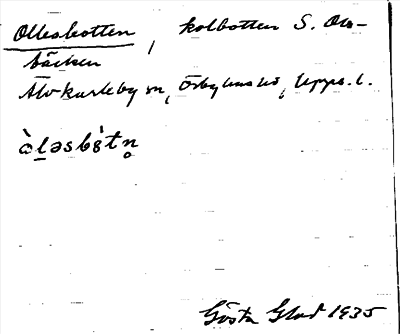 Ollesbotten, kolbotten S. Ols-
bäcken
Älvkarleby sn, Örbyhus hd, Upps. l.
àḻəsbò̤tn̥
Gösta Glad 1935